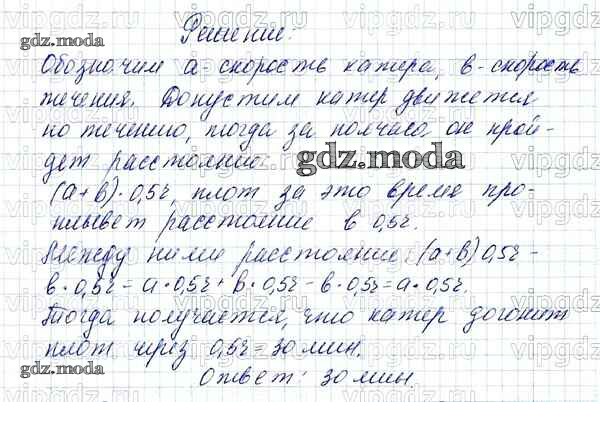 Решение:
gdz.moda
Обозначим a - скорость катера, в - скорость
течения. Допустим катер движется
по течению, тогда за полчаса он прой-
дет расстояние
gdz.moda
(a+в)·0,5ч, плот за это время про-
плывет расстояние в 0,5ч.
Между ними расстояние: (a+в)0,5ч -
в·0,5ч = a·0,5ч + в·0,5ч - в·0,5ч = a·0,5ч.
Тогда получается, что катер догонит
плот через 0,5ч = 30 мин.
gdz.moda
Ответ: 30 мин.
gdz.moda